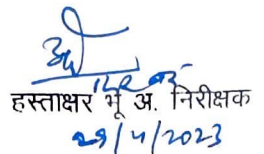 हस्ताक्षर भू अ. निरीक्षक
29/4/2023